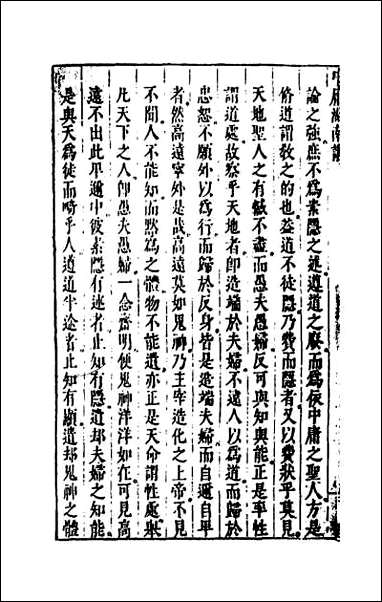 論之強庶不爲素隱之述遵道之厭而爲依中庸之聖人方是
脩道謂教之的也葢道不徒隱乃費而隱者又以費狀乎莫見
天地聖人之有憾不盡而愚夫愚婦反可與知與能正是率性
謂道處故察乎天地者即造端於夫婦不遠人以爲道而歸於
忠恕不願外以爲行而歸於反身皆是造端夫婦而自邇自卑
者然高遠寧外是哉高遠莫如鬼神乃主宰造化之上帝不見
不聞人不能知而黙爲之體物不能遺亦正是天命謂性處舉
凡天下之人即愚夫愚婦一念齋明便鬼神洋洋如在可見高
遠不出此卑邇中彼素隱有述者止知有隱遺却夫婦之知能
是與天爲徒而畸乎人道遵道半途者止知有顯遺却鬼神之體